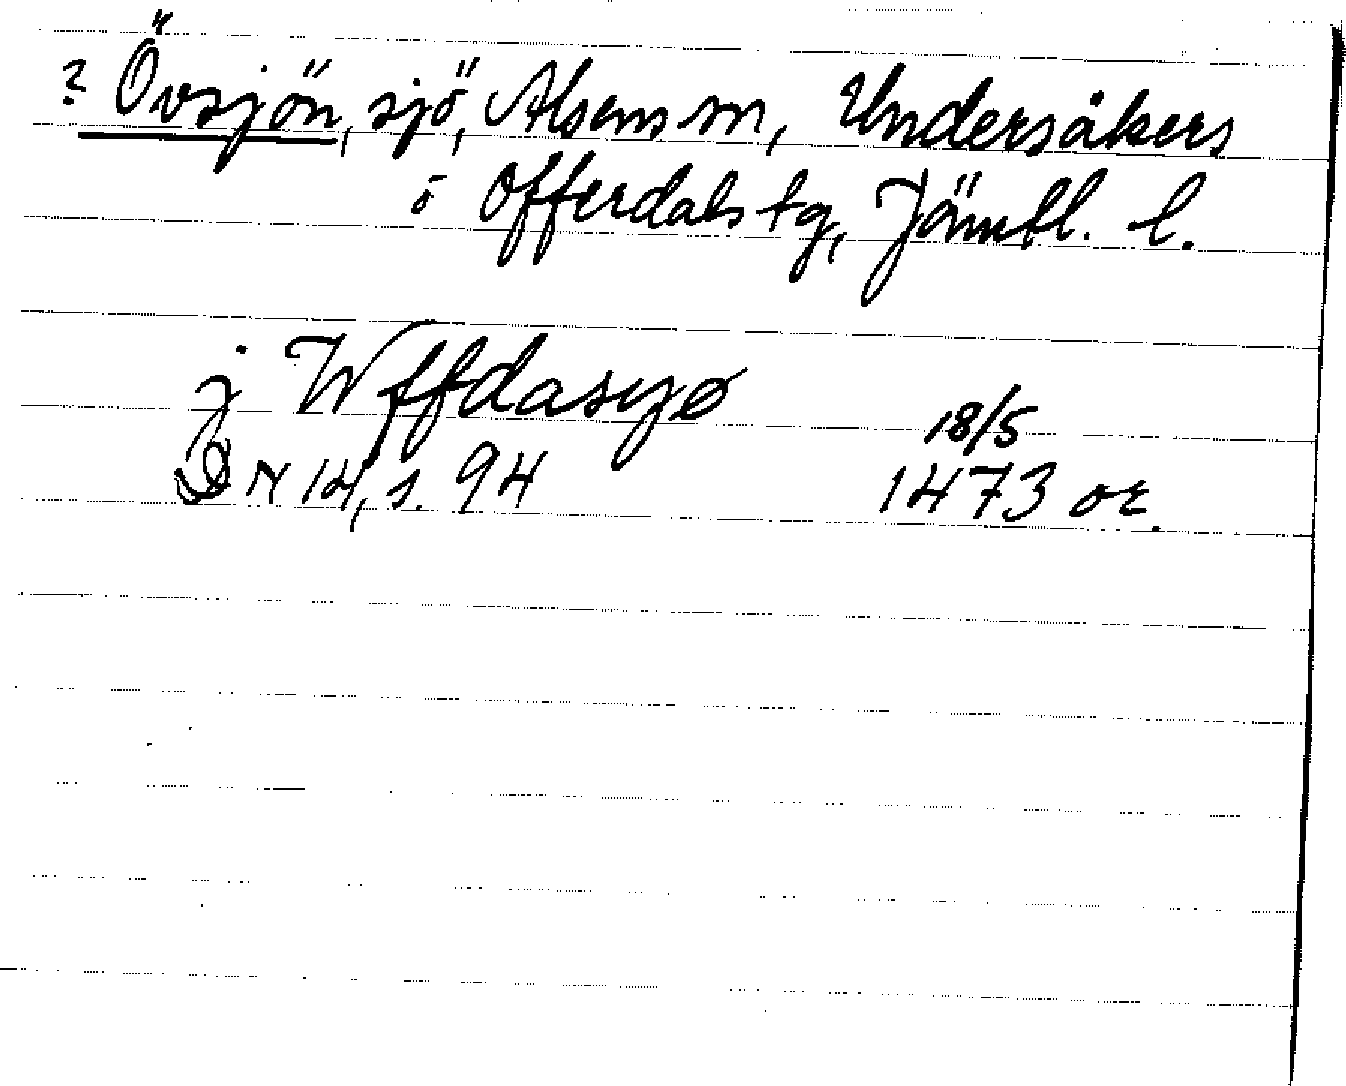 ? Övsjön, sjö, Alsens sn, Undersåkers
o Offerdals tg, Jämtl. l.
j Wffdasyø
18/5
DN 14, s. 94 1473 or.